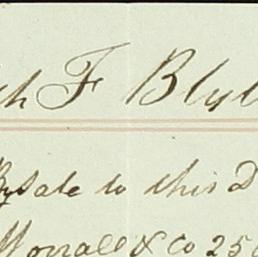 h F Bly
Bysale to this D
Morrall & Co 25